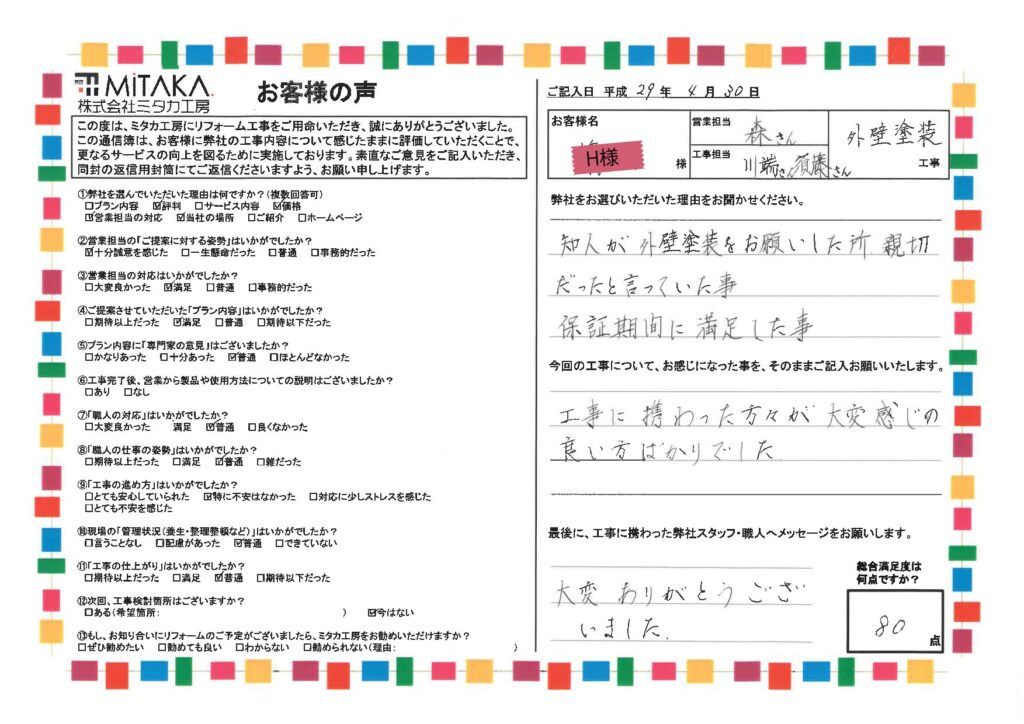 MiTAKA.
株式会社ミタカ工房
お客様の声
この度は、ミタカ工房にリフォーム工事をご用命いただき、誠にありがとうございました。
この通信簿は、お客様に弊社の工事内容について感じたままに評価していただくことで、
更なるサービスの向上を図るために実施しております。素直なご意見をご記入いただき、
同封の返信用封筒にてご返信くださいますよう、お願い申し上げます。
①弊社を選んでいただいた理由は何ですか？(複数回答可)
□プラン内容 ☑評判 □サービス内容 ☑価格
☑営業担当の対応 ☑当社の場所 □ご紹介 □ホームページ
②営業担当の「ご提案に対する姿勢」はいかがでしたか？
☑十分誠意を感じた □一生懸命だった □普通 □事務的だった
③営業担当の対応はいかがでしたか？
□大変良かった ☑満足 □普通 □事務的だった
④ご提案させていただいた「プラン内容」はいかがでしたか？
□期待以上だった ☑満足 □普通 □期待以下だった
⑤プラン内容に「専門家の意見」はございましたか？
□かなりあった □十分あった ☑普通 □ほとんどなかった
⑥工事完了後、営業から製品や使用方法についての説明はございましたか？
□あり □なし
⑦「職人の対応」はいかがでしたか？
□大変良かった 満足 ☑普通 □良くなかった
⑧「職人の仕事の姿勢」はいかがでしたか？
□期待以上だった □満足 ☑普通 □雑だった
⑨「工事の進め方」はいかがでしたか？
□とても安心していられた ☑特に不安はなかった □対応に少しストレスを感じた
□とても不安を感じた
⑩現場の「管理状況(養生・整理整頓など)」はいかがでしたか？
□言うことなし □配慮があった ☑普通 □できていない
⑪「工事の仕上がり」はいかがでしたか？
□期待以上だった □満足 ☑普通 □期待以下だった
⑫次回、工事検討箇所はございますか？
□ある(希望箇所: ) ☑今はない
⑬もし、お知り合いにリフォームのご予定がございましたら、ミタカ工房をお勧めいただけますか？
□ぜひ勧めたい □勧めても良い □わからない □勧められない(理由: )
ご記入日 平成 29 年 4 月 30 日
お客様名
H様
様
営業担当
森さん
工事担当
川端さん 須藤さん
外壁塗装
工事
弊社をお選びいただいた理由をお聞かせください。
知人が外壁塗装をお願いした所、親切
だったと言っていた事
保証期間に満足した事
今回の工事について、お感じになった事を、そのままご記入お願いいたします。
工事に携わった方々が大変感じの
良い方ばかりでした
最後に、工事に携わった弊社スタッフ・職人へメッセージをお願いします。
大変 ありがとう ござ
いました。
総合満足度は
何点ですか？
80
点